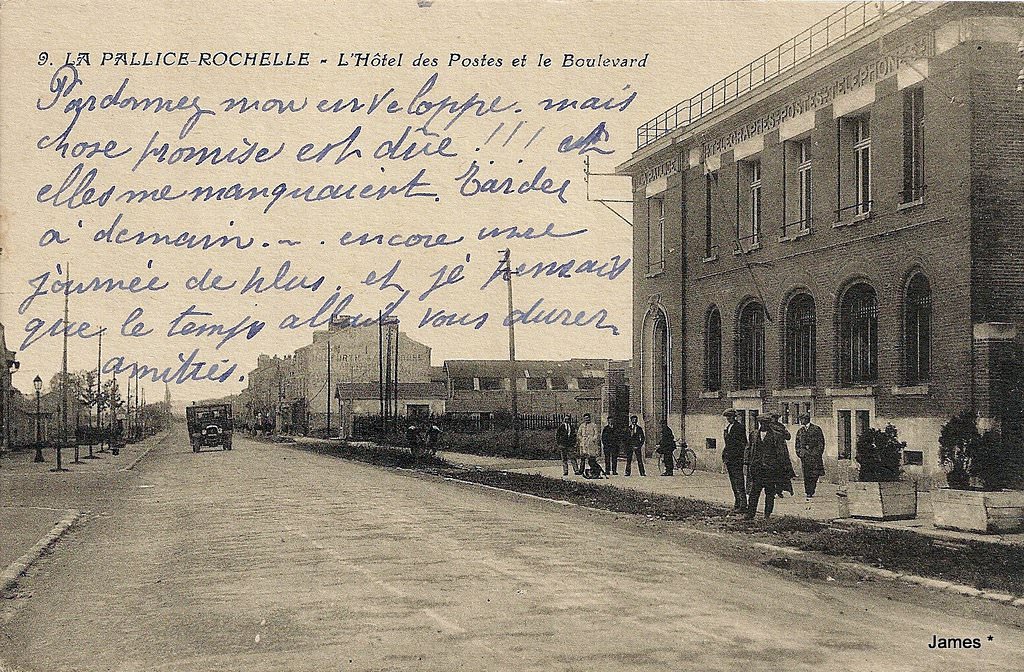 9. LA PALLICE-ROCHELLE - L'Hôtel des Postes et le Boulevard
Pardonnez mon enveloppe. mais
chose promise est due !!! et
elles me manquaient. Tarder
à demain. ~ . encore une
journée de plus. et je pensais
que le temps allait vous durer
amitiés.
LA PALLICE TÉLÉGRAPHES-POSTES-TÉLÉPHONES
James *